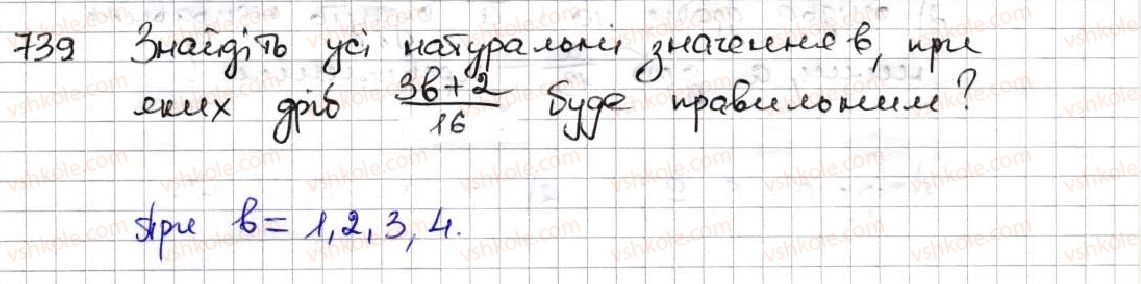 739 Знайдіть усі натуральні значення в, при
яких дріб (3в+2)/16 буде правильним?
При в = 1, 2, 3, 4.
vshkole.com